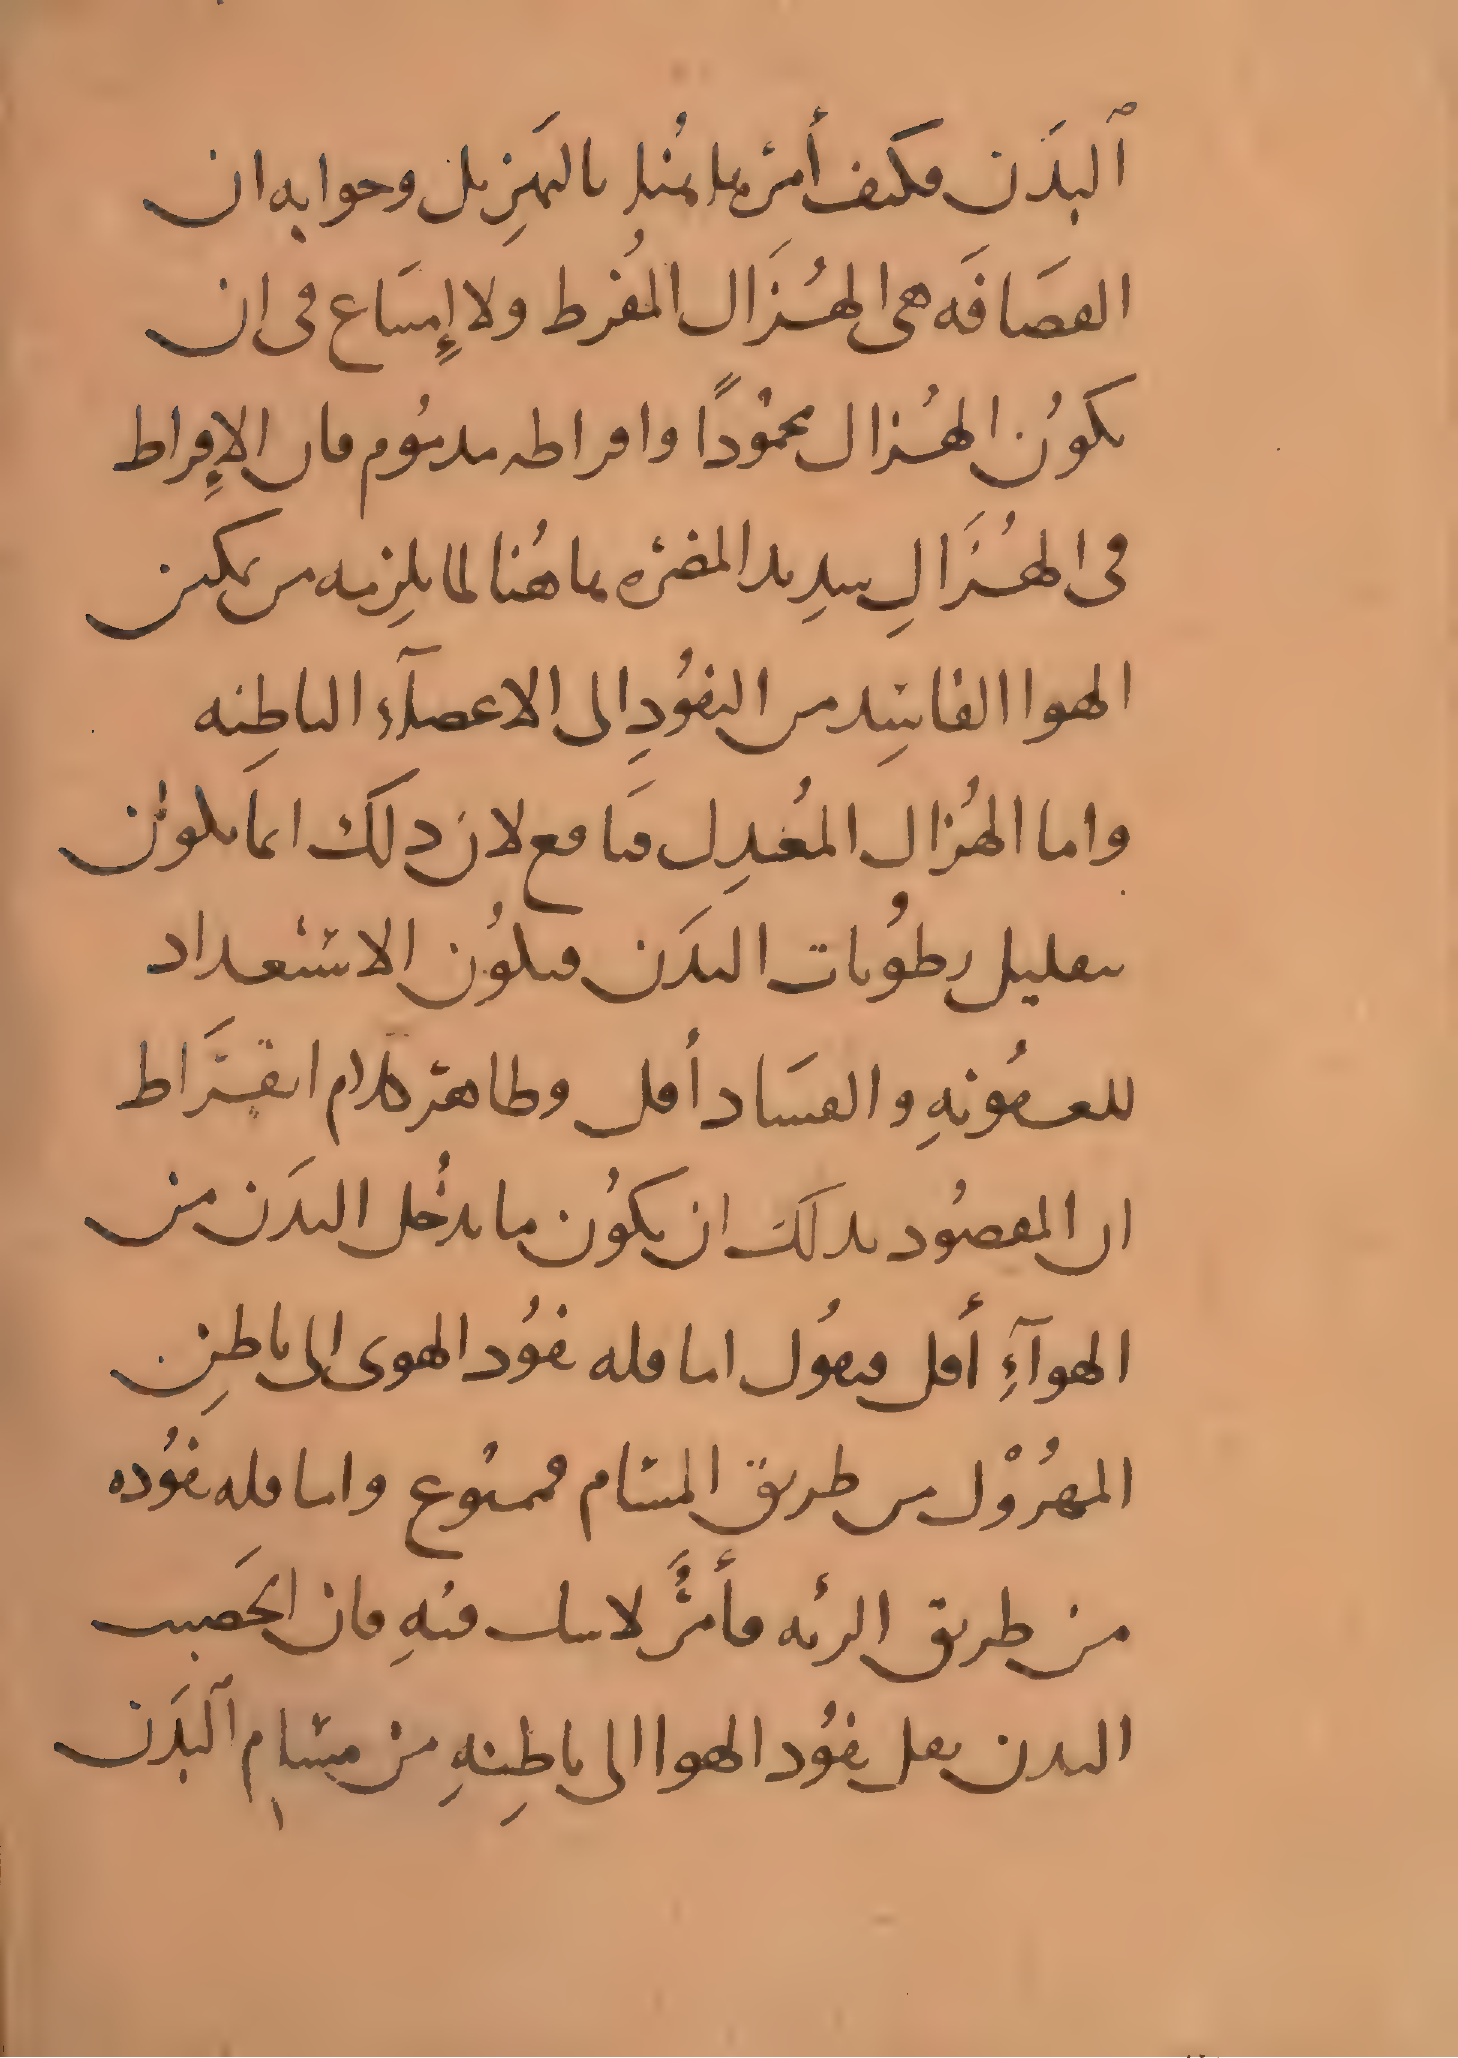 ٱلبدَن فكيف أمرَ هاهُنا بالتهَزِيل وجوابه ان
القصَافَه هى الهُزَال المُفرط ولا إِمتنَاع فى ان
يكوُن الهُزال محموْدًا وافراطه مذموُم فان الإِفراط
فى الهُزَالِ شدِيد المضره هاهُنا لما يلزمه من تمكين
الهوا الفاسِد من النفوُدِ الى الاعضآء الباطِنه
واما الهُزال المُعتدِل فنَافع لان دلكَ انما يكوُن
بتقليل رطوُبات البدَن فيكوُن الاستعداد
للعفوُنهِ والفسَاد أقل وظاهر كلام ابقرَاط
ان المقصوُد بدلكَ ان يكوُن ما يدخُل البدَن من
الهوآءِ أقل فنقوُل اما قله نفوُد الهوى الى باطِن
المهزُوْل من طريق المسَام فممنوُع واما قله نفوُده
من طريق الرئه فأمرٌ لا شك فيهِ فان الخَصيب
البدن يقل نفوُد الهوا الى باطِنهِ من مسَام ٱلبدَن